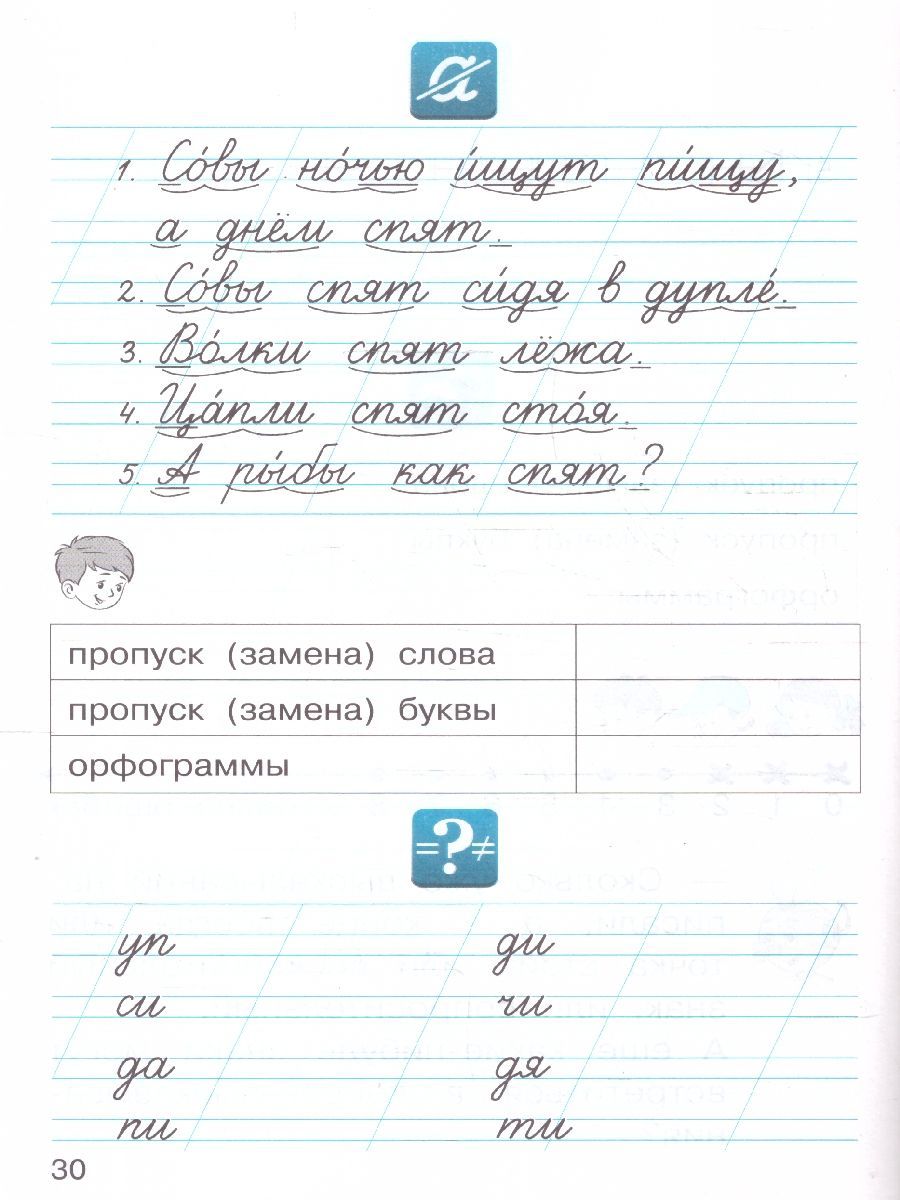 а
1. Со́вы но́чью и́щут пи́щу,
а днём спят.
2. Со́вы спят си́дя в дупле́.
3. Во́лки спят лёжа.
4. Ца́пли спят сто́я.
5. А ры́бы как спят?
пропуск (замена) слова
пропуск (замена) буквы
орфограммы
=?≠
уп ди
си чи
да дя
пи ти
30